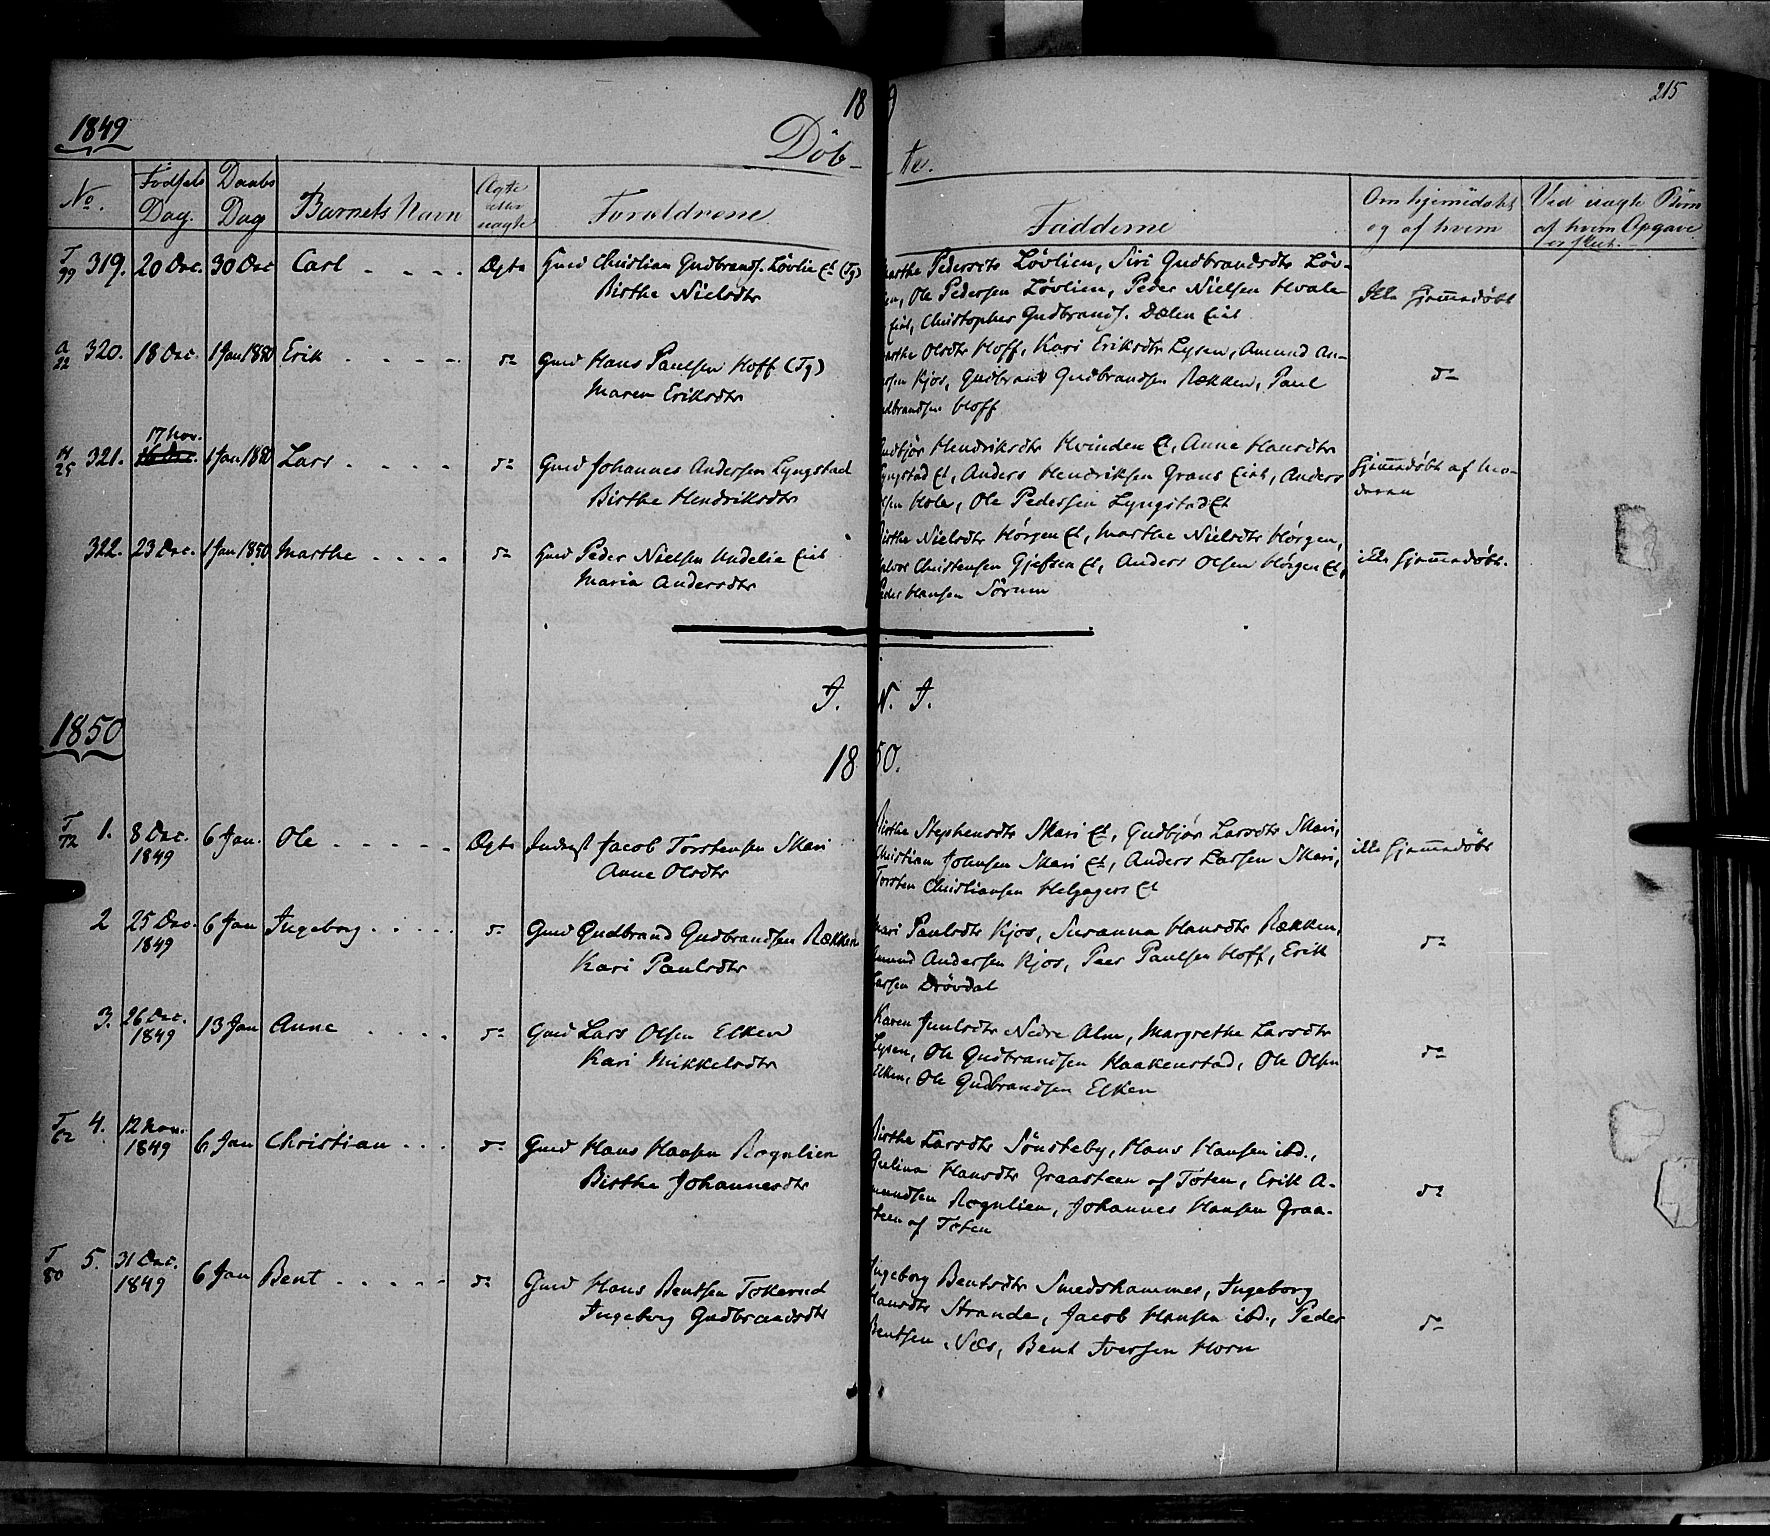 18 9
215
1849
Döb- te.
No.
Fødsels Dag.
Daabs Dag
Barnets Navn
Ægte eller uægte
Forældrene
Fadderne
Om hjemmedøbt og af hvem
Ved uægte Børn af hvem Opgave er skeet.
T 99 319. 20 Dec. 30 Dec Carl Ægte Gmd Christian Gudbrands. Løvlie Et (Tg)
Birthe Nielsdtr
Marthe Pedersdtr Løvlien, Siri Gudbrandsdtr Løv-
Ole Pedersen Løvlien, Peder Nielsen Hvale
Eiet, Christopher Gudbrands. Dælen Eiet
Ikke hjemmedøbt
A 22 320. 18 Dec. 1 Jan 1850 Erik do Gmd Hans Paulsen Hoff (Tg)
Maren Eriksdtr
Marthe Olsdtr Hoff, Kari Eriksdtr Lysen, Amund An-
dersen Kjos, Gudbrand Gudbrandsen Rækken, Paul
Gudbrandsen Hoff
do
17 Nov.
H 25 321. 16 Dec. 1 Jan 1850 Lars do Gmd Johannes Andersen Lyngstad
Birthe Hendriksdtr
Gudbjør Hendriksdtr Hvinden Et, Anne Hansdtr
Lyngstad Et, Anders Hendriksen Grans Eiet, Anders
Hole, Ole Pedersen Lyngstad Et
Hjemmedøbt af Mo-
deren
322. 23 Dec. 1 Jan 1850 Marthe do Gmd Peder Nielsen Undelie Eiet
Maria Andersdtr
Birthe Nielsdtr Hørgen Et, Marthe Nielsdtr Hørgen,
Halvor Christensen Gjefsen Et, Anders Olsen Hørgen Et,
Peder Hansen Sørum
ikke hjemmedøbt.
J. N. J.
1850
18 50.
T 72 1. 8 Dec. 1849 6 Jan. Ole Ægte Inderst Jacob Torstensen Skari
Anne Olsdtr
Birthe Stephensdtr Skari Et, Gudbjør Larsdtr Skari,
Christian Johnsen Skari Et, Anders Larsen Skari,
Torsten Christiansen Helgagers Et
ikke hjemmedøbt
2 25 Dec. 1849 6 Jan Ingeborg do Gmd Gudbrand Gudbrandsen Rækken
Kari Paulsdtr
Mari Paulsdtr Kjos, Susanna Hansdtr Rækken,
Amund Andersen Kjos, Peer Paulsen Hoff, Erik
Larsen Drövdal
do
3. 26 Dec. 1849 13 Jan Anne do Gmd Lars Olsen Elken
Kari Mikkelsdtr
Karen Juulsdtr Nedre Alm, Margrethe Larsdtr
Lysen, Ole Gudbrandsen Haakenstad, Ole Olsen
Elken, Ole Gudbrandsen Elken
do
T 62 4. 12 Nov. 1849 6 Jan Christian do Gmd Hans Hansen Rognlien
Birthe Johannesdtr
Birthe Larsdtr Sönsteby, Hans Hansen ibd.,
Hansdtr Graasteen af Toten, Erik A-
mundsen Rognlien, Johannes Hansen Graa-
steen af Toten
do
T 80 5. 31 Dec. 1849 6 Jan Bent do Gmd Hans Bentsen Tokerud
Ingeborg Gudbrandsdtr
Ingeborg Bentsdtr Smedshammer, Ingeborg
Hansdtr Strande, Jacob Hansen ibd., Peder
Bentsen Næs, Bent Iversen Horn
do